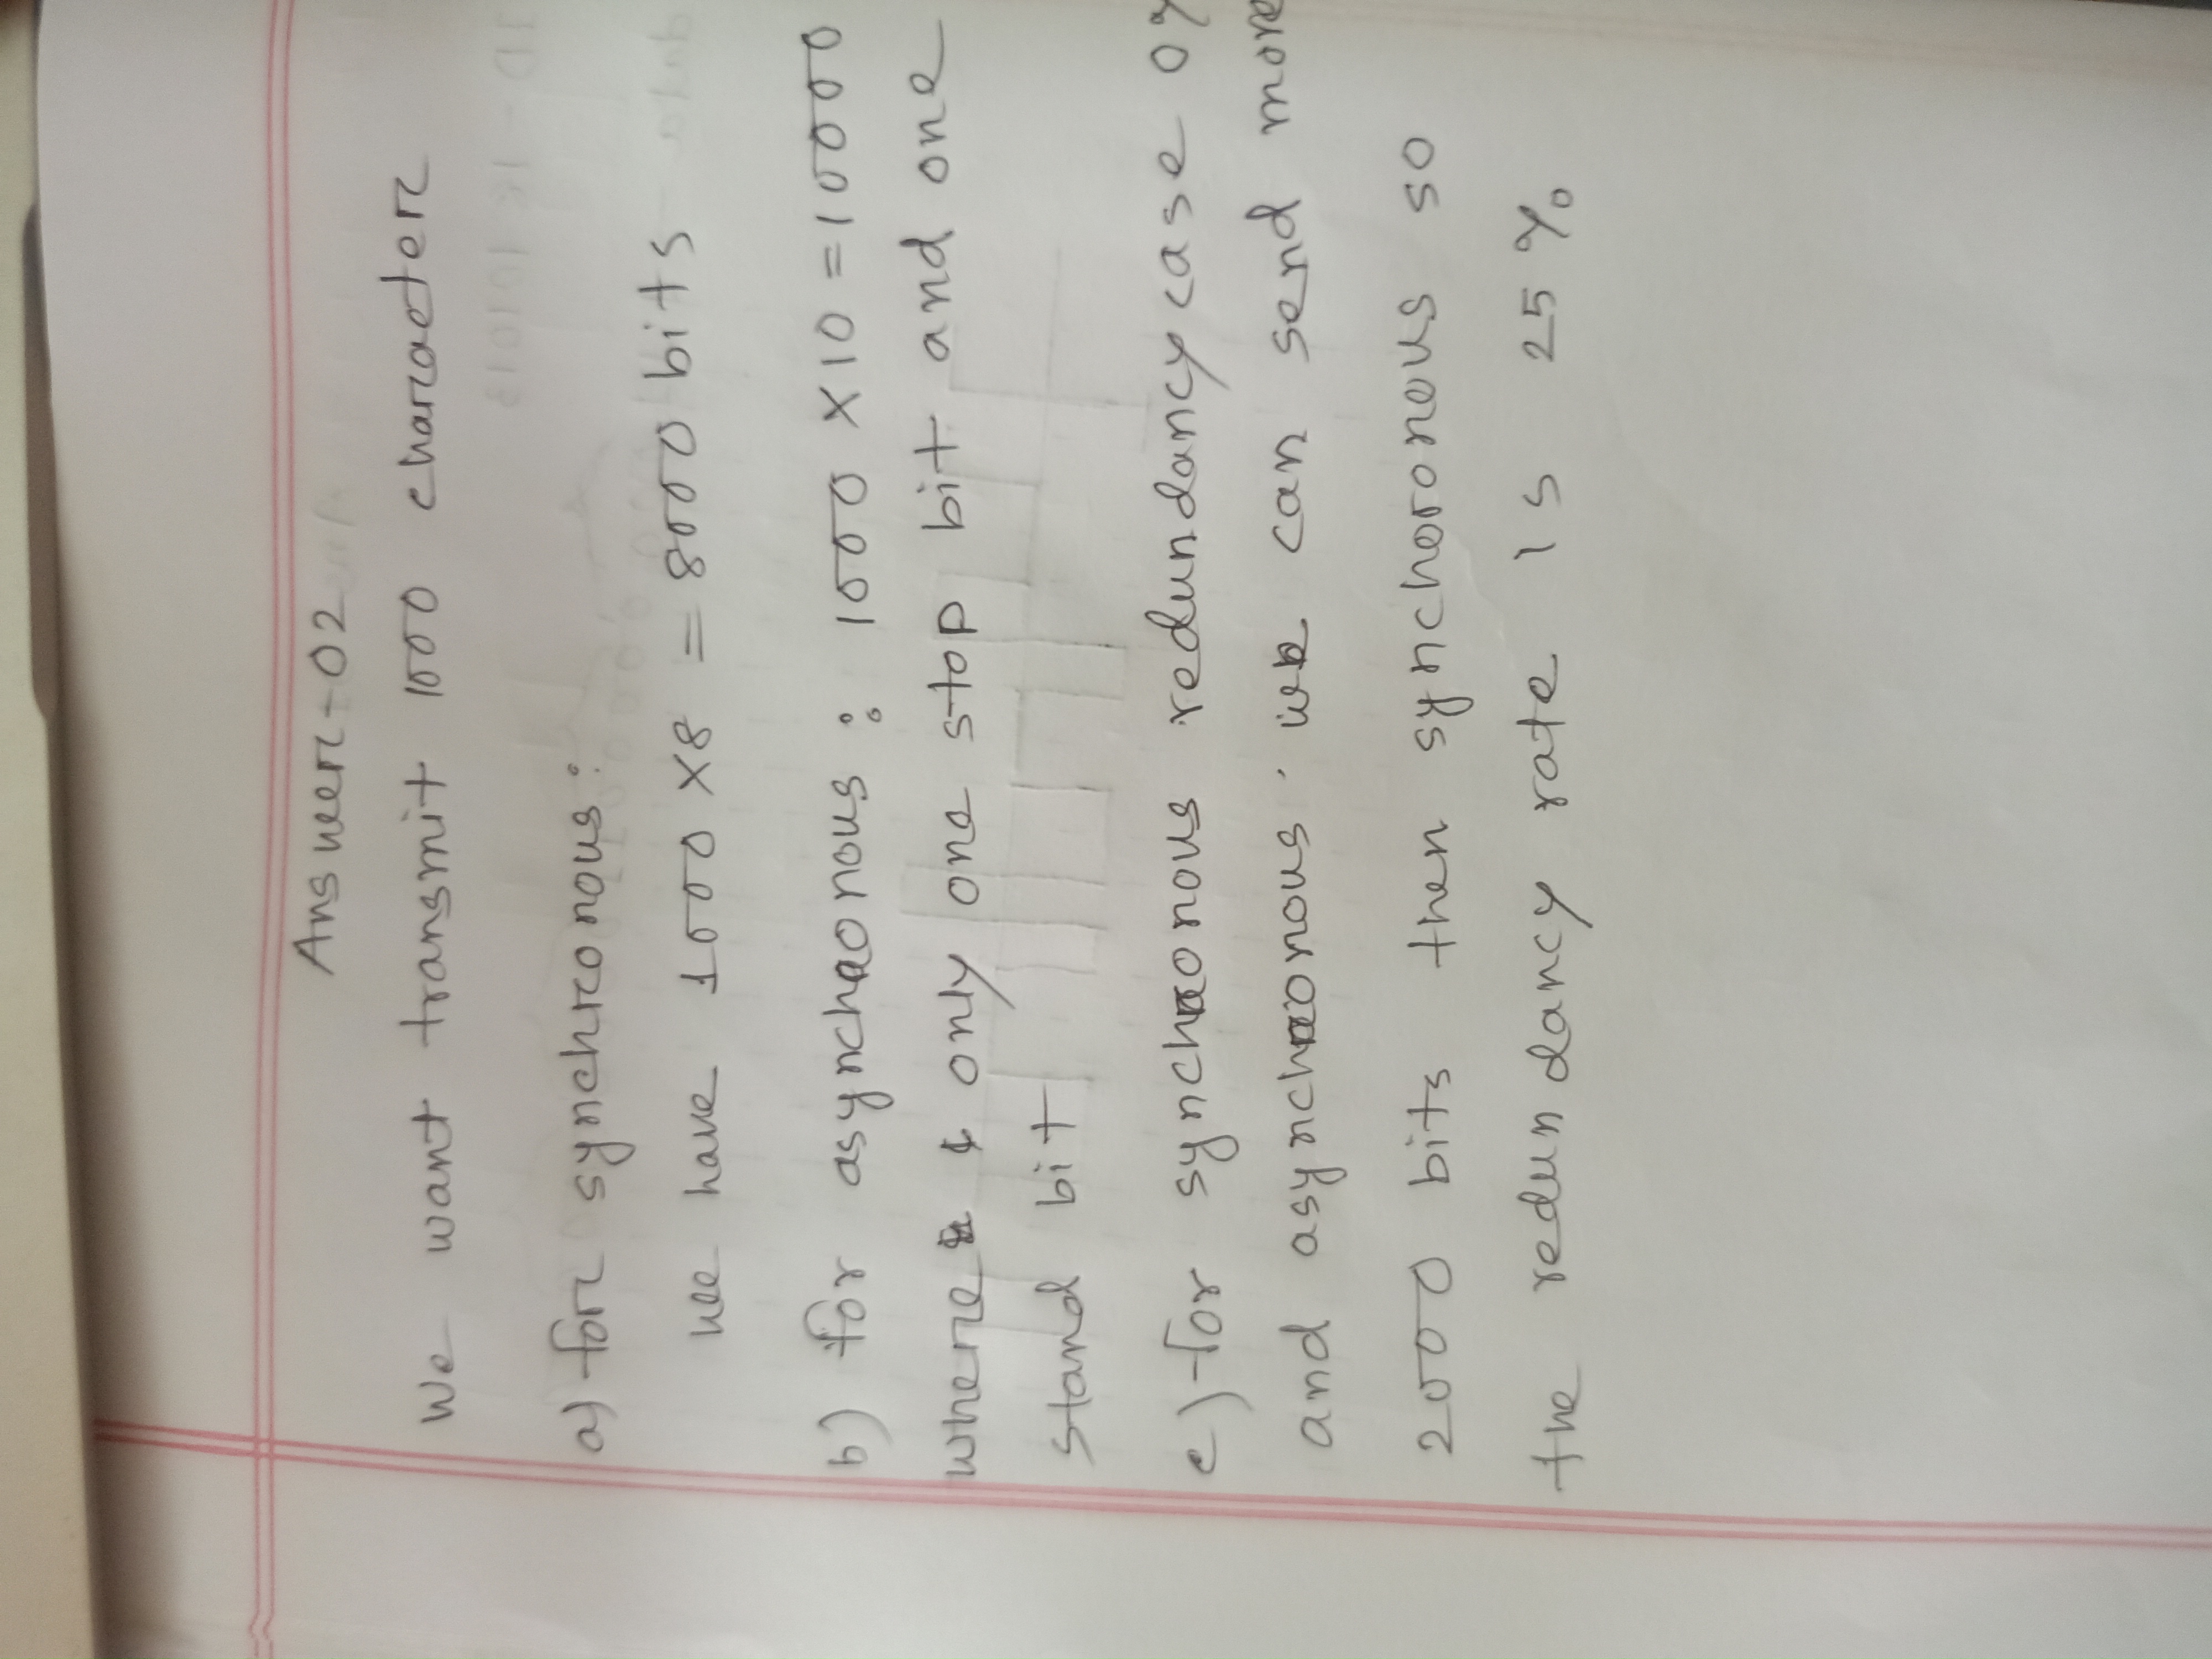 Answer-02
We want transmit 1000 character
a) for synchronous:
we have 1000 x8 = 8000 bits
b) for asynchronous : 1000 X10 = 10000
where only one stop bit and one
stand bit
c) for synchronous redundancy case 0%
and asynchronous. we can send more
2000 bits then synchoronous so
the redundancy rate is 25%